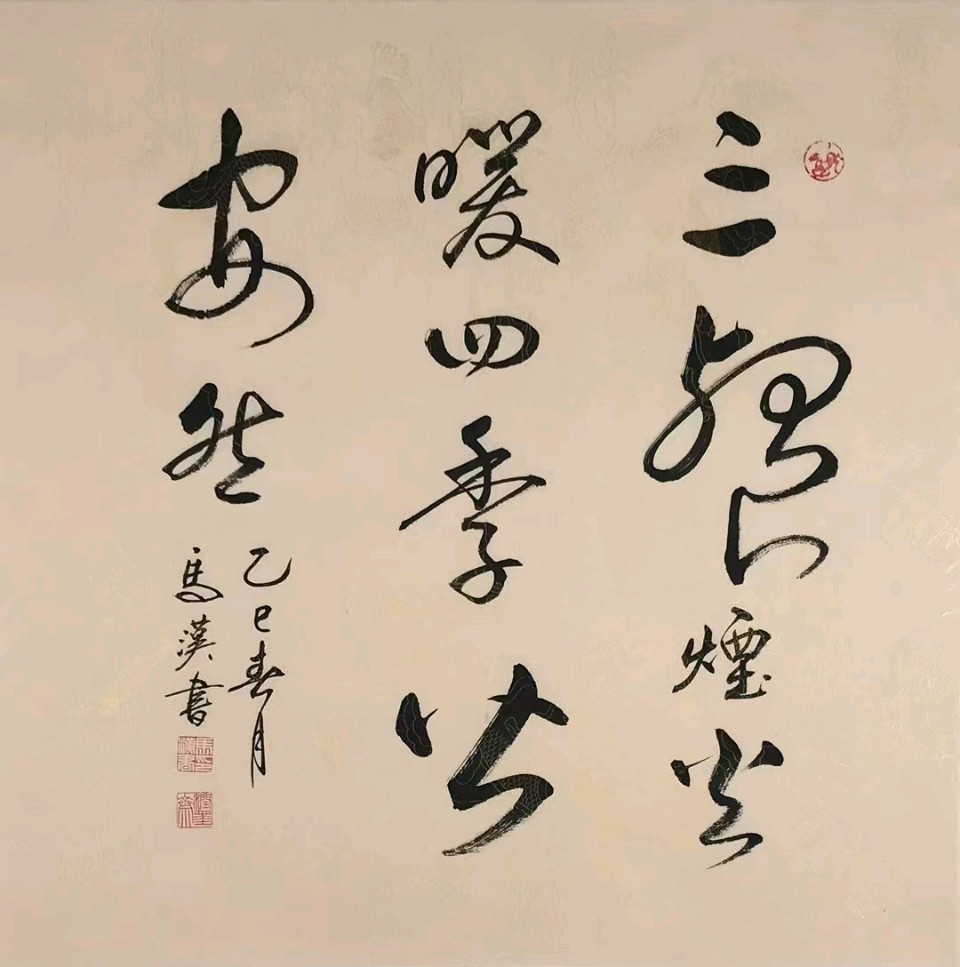 三餐煙火
暖四季皆
安然
乙巳春月
馬漢書